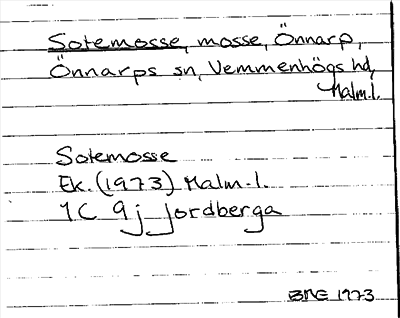 Sotemosse, mosse, Önnarp,
Önnarps sn, Vemmenhögs hd,
Malm.l.
Sotemosse
Ek. (1973) Malm.l.
1C 9j Jordberga
BME 1973